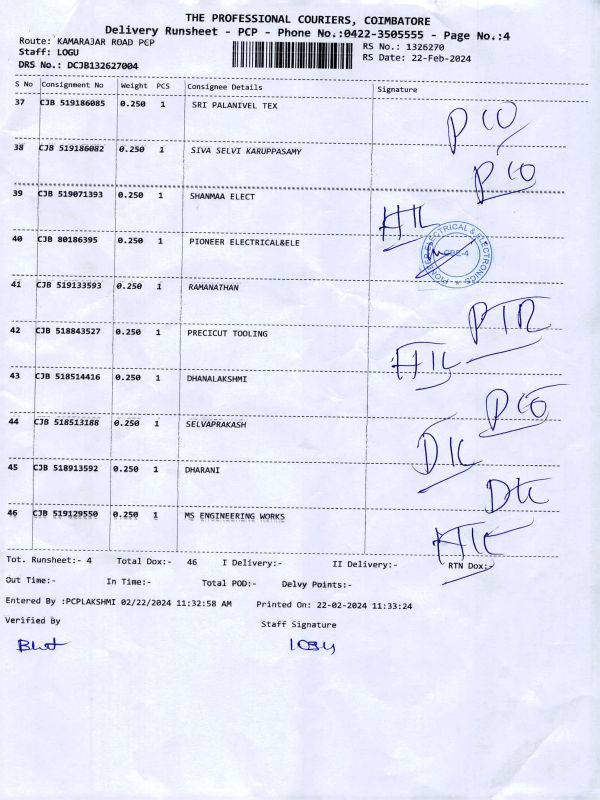 THE PROFESSIONAL COURIERS, COIMBATORE
Delivery Runsheet - PCP - Phone No.:0422-3505555 - Page No.:4
Route: KAMARAJAR ROAD PCP RS No.: 1326270
Staff: LOGU RS Date: 22-Feb-2024
DRS No.: DCJB132627004
S No Consignment No Weight PCS Consignee Details Signature
37 CJB 519186085 0.250 1 SRI PALANIVEL TEX
38 CJB 519186082 0.250 1 SIVA SELVI KARUPPASAMY
39 CJB 519071393 0.250 1 SHANMAA ELECT
40 CJB 80186395 0.250 1 PIONEER ELECTRICAL&ELE
PIONEER ELECTRICAL & ELECTRONICS
CBE-4
41 CJB 519133593 0.250 1 RAMANATHAN
42 CJB 518843527 0.250 1 PRECICUT TOOLING
43 CJB 518514416 0.250 1 DHANALAKSHMI
44 CJB 518513188 0.250 1 SELVAPRAKASH
45 CJB 518913592 0.250 1 DHARANI
46 CJB 519129550 0.250 1 MS ENGINEERING WORKS
Tot. Runsheet:- 4 Total Dox:- 46 I Delivery:- II Delivery:- RTN Dox:-
Out Time:- In Time:- Total POD:- Delvy Points:-
Entered By :PCPLAKSHMI 02/22/2024 11:32:58 AM Printed On: 22-02-2024 11:33:24
Verified By Staff Signature